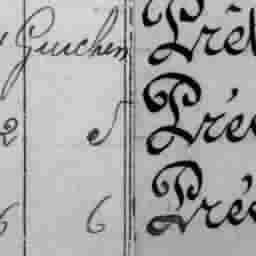 Guichen Prêt
2 5 Prée
6 6 Prés